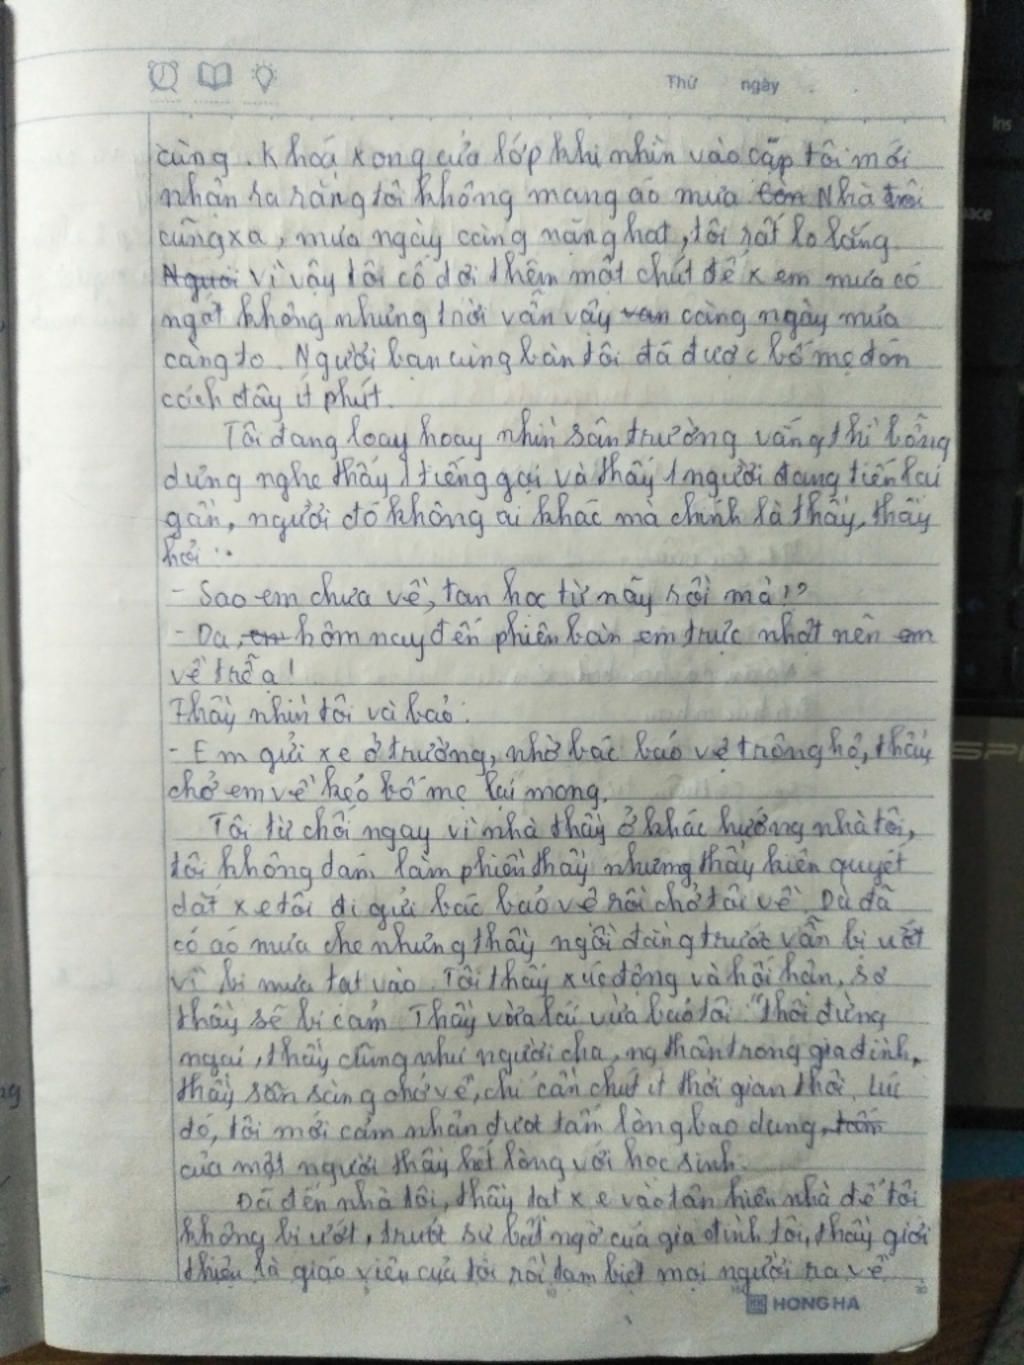 Thứ ngày
cùng. Khoá xong cửa lớp khi nhìn vào cặp tôi mới
nhận ra rằng tôi không mang áo mưa Nhà tôi
cũng xa, mưa ngày càng nặng hạt, tôi rất lo lắng.
Người vì vậy tôi cố đợi thêm một chút để xem mưa có
ngớt không nhưng trời vẫn vậy vẫn càng ngày mưa
càng to. Người bạn cùng bàn tôi đã được bố mẹ đón
cách đây ít phút.
Tôi đang loay hoay nhìn sân trường vắng thì bỗng
dưng nghe thấy 1 tiếng gọi và thấy 1 người đang tiến lại
gần, người đó không ai khác mà chính là thầy, thầy
hỏi:
- Sao em chưa về, tan học từ nãy rồi mà!?
- Dạ, em hôm nay đến phiên bàn em trực nhật nên em
về trễ ạ!
Thầy nhìn tôi và bảo:
- Em gửi xe ở trường, nhờ bác bảo vệ trông hộ, thầy
chở em về kẻo bố mẹ lại mong.
Tôi từ chối ngay vì nhà thầy ở khác hướng nhà tôi,
tôi không dám làm phiền thầy nhưng thầy kiên quyết
dắt xe tôi đi gửi bác bảo vệ rồi chở tôi về. Dù đã
có áo mưa che nhưng thầy ngồi đằng trước vẫn bị ướt
vì bị mưa tạt vào. Tôi thấy xúc động và hối hận, sợ
thầy sẽ bị cảm. Thầy vừa lái vừa bảo tôi "thôi đừng
ngại, thầy cũng như người cha, ng thân trong gia đình,
thầy sẵn sàng chở về, chỉ cần chút ít thời gian thôi. Lúc
đó, tôi mới cảm nhận được tấm lòng bao dung, tấm
của một người thầy hết lòng với học sinh.
Đã đến nhà tôi, thầy tạt xe vào tận hiên nhà để tôi
không bị ướt, trước sự bất ngờ của gia đình tôi, thầy giới
thiệu là giáo viên của tôi rồi tạm biệt mọi người ra về
HONG HA
Ins